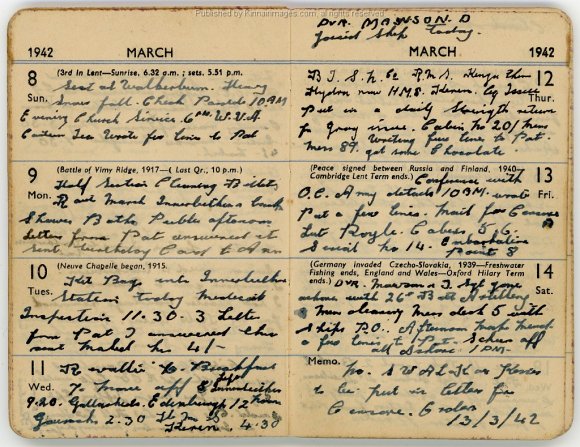 Published by Kinnaimages.com, all rights reserved
1942 MARCH
8 (3rd In Lent—Sunrise, 6.32 a.m.; sets, 5.51 p.m.
Sun. Rest at Walkerburn. Heavy
Snow fall. Church Parade 10 AM
Evening Church Service 6 PM. W.V.S
Canteen Tea Wrote few lines to Pat
9 (Battle of Vimy Ridge, 1917—(Last Qr., 10 p.m.)
Mon. Half Section Cleaning Billets
Rout March Innerleithen back
Shower Baths Peebles afternoon
letters from Pat answered it
sent Birthday Card to Ann
10 (Neuve Chapelle began, 1915.
Tues. Kit Bags into Innerleithen
Station today medical
Inspection 11.30. 3 Letter
from Pat I answered them
sent Mabel her 4/-
11 Reveille 6. Breakfast
Wed. 7. move off 8 from Innerleithen
9.20. Gallashiels. Edinburgh 12 Noon
Gourock 2.30 Keren 4.30
Dvr. MAWSON. D
Joined Ship today.
MARCH 1942
12 B I. S. N. Co R.M.S. Kenya then
Thur. Hydra now H.M.S. Keren. Coy Issue
Put in a daily Strength return
for Grog issue. Cabin No 20/ Mess
Mess 89. Writing few line to Pat.
got some Chocolate
13 (Peace signed between Russia and Finland, 1940—
Cambridge Lent Term ends.) Conference with
Fri. O.C. Army details 10 AM. wrote
Pat a few lines. Mail for Censor
Lut Boyle. Cabin
Serial No 14. Embarkation
Point 8
14 (Germany invaded Czecho-Slovakia, 1939—Freshwater
Fishing ends, England and Wales—Oxford Hilary Term
ends.) Dvr. Mawson & Sgt gone
Sat. ashore with
Men cleaning Mess deck 5 with
Ships P.O. Afternoon
a few lines to Pat.
all ashore 1 PM
Memo. No. S W A L K or Kisses
to be put in letters for
Censor. Orders
13/3/42